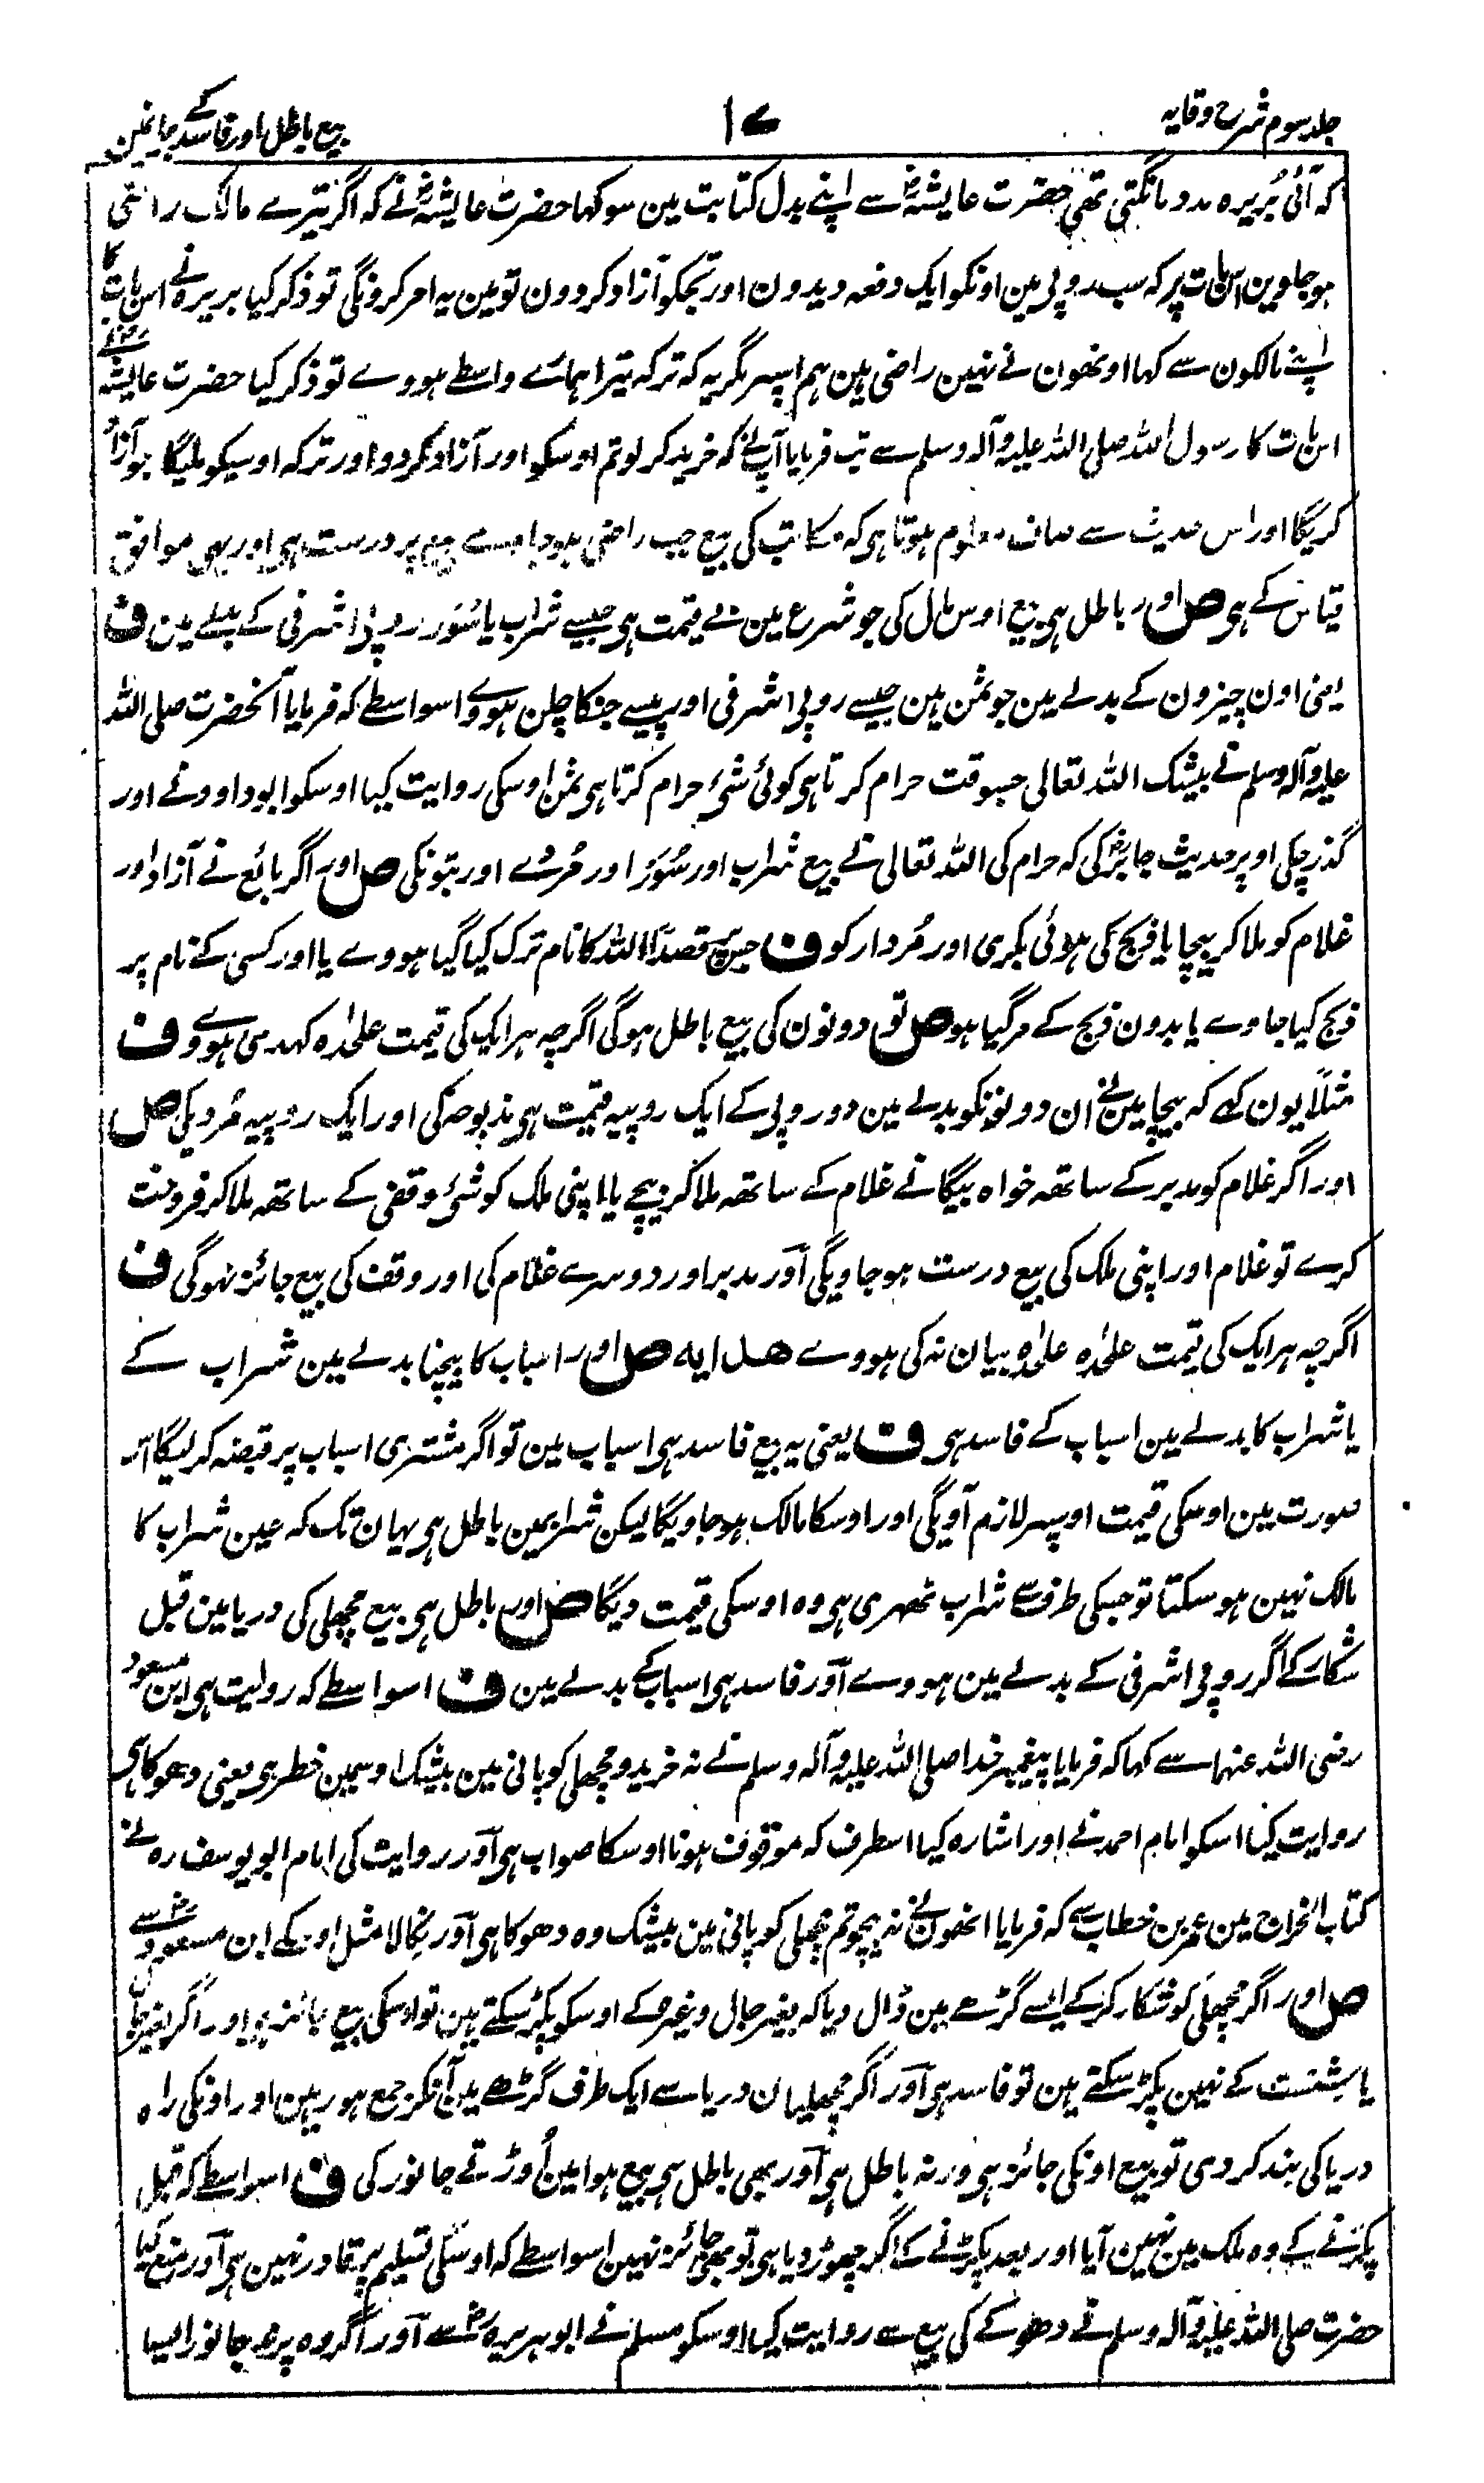 جلد سوم شرح وقایہ
۱۷
بیع باطل اور فاسد کے جا نمین
کہ آئی بُریرہ مدد مانگتی تھی حضرت عایشہؓ سے اپنے بدل کتابت مین سو کہا حضرت عایشہؓ نے کہ اگر تیرے مالک راضی
ہو جاوین اس بات پر کہ سب روپی مین اونکو ایک دفعہ دیدون اور تجکو آزاد کردون تو مین یہ امر کرونگی تو ذکر کیا بریرہ نے اس بات کا
اپنے مالکون سے کہا اونھون نے نہین راضی ہین ہم اسپر مگر یہ کہ ترکہ تیرا ہمارے واسطے ہووے تو ذکر کیا حضرت عایشہؓ نے
اس بات کا رسول اللہ صلی اللہ علیہ وآلہ وسلم سے تب فرمایا آپ نے کہ خرید کر لو تم اوسکو اور آزاد کردو اور ترکہ اوسیکو ملیگا جو آزاد
کریگا اور اس حدیث سے صاف معلوم ہوتا ہی کہ مکاتب کی بیع جب راضی ہو جاوے بیع پر درست ہی اور یہی موافق
قیاس کے ہی ص اور باطل ہی بیع اوس مال کی جو شرع مین بے قیمت ہی جیسے شراب یا سُوَر روپی اشرفی کے بدلے مین ف
یعنی اون چیزون کے بدلے مین جو ثمن ہین جیسے روپی اشرفی اور پیسے جنکا چلن ہووے اسواسطے کہ فرمایا آنحضرت صلی اللہ
علیہ وآلہ وسلم نے بیشک اللہ تعالی جسوقت حرام کرتا ہی کوئی شئ حرام کرتا ہی ثمن اوسکی روایت کیا اوسکو ابوداوود نے اور
گذر چکی اوپر حدیث جابرؓ کی کہ حرام کی اللہ تعالی نے بیع شراب اور سُوَر اور مُردے اور بتونکی ص اور اگر بائع نے آزاد اور
غلام کو ملا کر بیچا یا ذبح کی ہوئی بکری اور مُردار کو ف جسپر قصداً اللہ کا نام ترک کیا گیا ہووے یا اور کسی کے نام پر
ذبح کیا جاوے یا بدون ذبح کے مرگیا ہو ص تو دونون کی بیع باطل ہوگی اگرچہ ہر ایک کی قیمت علحٰدہ کہدی ہووے ف
مثلًا یون کہے کہ بیچا مین نے ان دونونکو بدلے مین دو روپی کے ایک روپیہ قیمت ہی مذبوحہ کی اور ایک روپیہ مُردیکی ص
اور اگر غلام کو مدبر کے ساتھ خواہ بیگانے غلام کے ساتھ ملا کر بیچے یا اپنی ملک کو شئ وقفی کے ساتھ ملا کر فروخت
کرے تو غلام اور اپنی ملک کی بیع درست ہو جاویگی اور مدبر اور دوسرے غلام کی اور وقف کی بیع جائز نہوگی ف
اگرچہ ہر ایک کی قیمت علحٰدہ علحٰدہ بیان نہ کی ہووے ھدایہ ص اور اسباب کا بیچنا بدلے مین شراب کے
یا شراب کا بدلے مین اسباب کے فاسد ہی ف یعنی یہ بیع فاسد ہی اسباب مین تو اگر مشتری اسباب پر قبضہ کر لیگا اس
صورت مین اوسکی قیمت اوسپر لازم آویگی اور اوسکا مالک ہو جاویگا لیکن شراب مین باطل ہی یہان تک کہ عین شراب کا
مالک نہین ہو سکتا تو جسکی طرف سے شراب ٹھہری ہی وہ اوسکی قیمت دیگا ص اور باطل ہی بیع مچھلی کی دریا مین قبل
شکار کے اگر روپی اشرفی کے بدلے مین ہووے اور فاسد ہی اسباب کے بدلے مین ف اسواسطے کہ روایت ہی ابن مسعود
رضی اللہ عنہما سے کہا کہ فرمایا پیغمبر خدا صلی اللہ علیہ وآلہ وسلم نے نہ خریدو مچھلی کو پانی مین بیشک اوسمین خطر ہی یعنی دھوکا ہی
روایت کیا اسکو امام احمد نے اور اشارہ کیا اسطرف کہ موقوف ہونا اوسکا صواب ہی اور روایت کی امام ابو یوسف رہ نے
کتاب الخراج مین عمر بن خطاب سے کہ فرمایا انھون نے نہ بیچو تم مچھلی کو پانی مین بیشک وہ دھوکا ہی اور نکالا مثل اوسکے ابن مسعودؓ سے
ص اور اگر مچھلی کو شکار کرکے ایسے گڑھے مین ڈال دیا کہ بغیر جال وغیرہ کے اوسکو پکڑ سکتے ہین تو اوسکی بیع جائز ہی اور اگر بغیر جال
یا شِست کے نہین پکڑ سکتے ہین تو فاسد ہی اور اگر مچھلیان دریا سے ایک طرف گڑھے مین آنکر جمع ہو رہین اور اونکی راہ
دریا کی بند کردی تو بیع اونکی جائز ہی ورنہ باطل ہی اور بھی باطل ہی بیع ہوا مین اُوڑتے جانور کی ف اسواسطے کہ قبل
پکڑنے کے وہ ملک مین نہین آیا اور بعد پکڑنے کے اگر چھوڑ دیا ہی تو بھی جائز نہین اسواسطے کہ اوسکی تسلیم پر قادر نہین ہی اور منع کیا
حضرت صلی اللہ علیہ وآلہ وسلم نے دھوکے کی بیع سے روایت کیا اوسکو مسلم نے ابوہریرہؓ سے اور اگر وہ پرند جانور ایسا